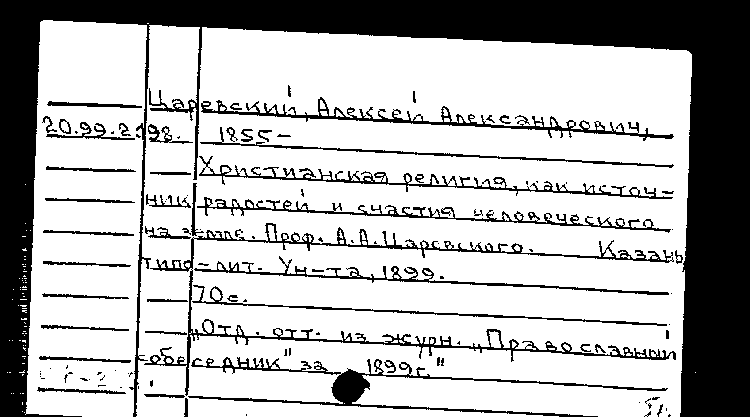 Царевский, Алексей Александрович,
20.99.2198. 1855-
Христианская религия, как источ-
ник радостей и счастия человеческого
на земле. Проф. А.А.Царевского. Казань,
типо-лит. Ун-та, 1899.
70с.
„Отд. отт. из журн. „Православный
собеседник" за 1899г."